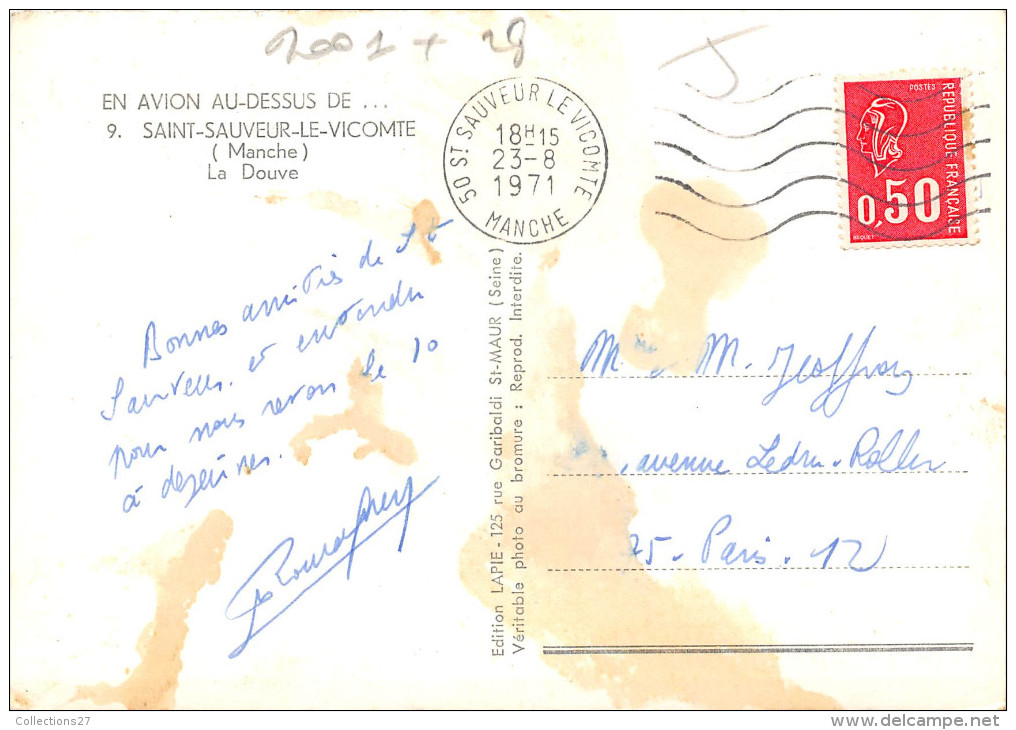 2001 + 28
J
EN AVION AU-DESSUS DE ...
9. SAINT-SAUVEUR-LE-VICOMTE
( Manche )
La Douve
50 ST SAUVEUR LE VICOMTE
18H15
23-8
1971
MANCHE
POSTES
REPUBLIQUE FRANÇAISE
0,50
BEQUET
Bonnes amitiés de St
Sauveur. et entendu
pour nous revoir le 10
à déjeûner.
Edition LAPIE - 125 rue Garibaldi St-MAUR (Seine)
Véritable photo au bromure : Reprod. Interdite.
M M. Jeoffroy
avenue Ledru-Rollin
75 - Paris - 12
Collections27
www.delcampe.net